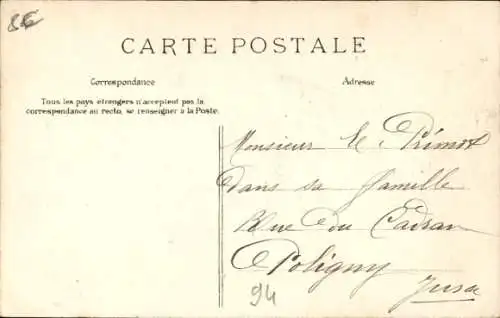 8€
CARTE POSTALE
Correspondance
Adresse
Tous les pays étrangers n'acceptent pas la
correspondance au recto, se renseigner à la Poste.
Monsieur E. Prímox
dans sa famille
Rue du Cadran
Poligny
Jura
94